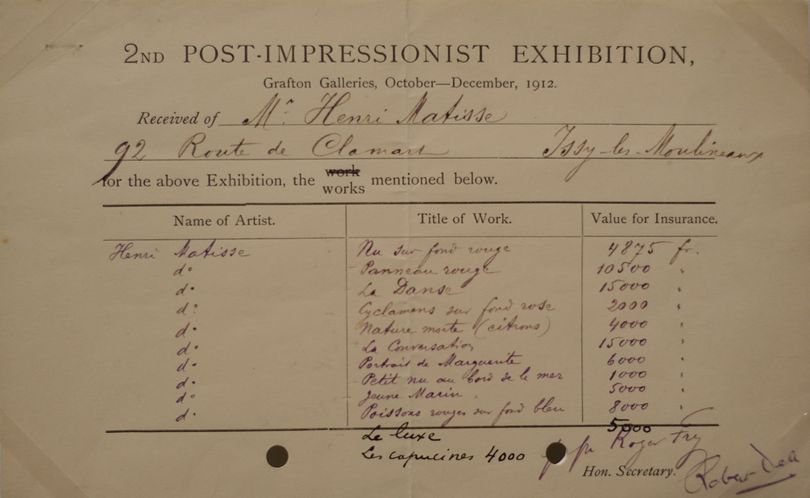 2ND POST-IMPRESSIONIST EXHIBITION,
Grafton Galleries, October—December, 1912.
Received of Mr. Henri Matisse
92 Route de Clamart Issy-les-Moulineaux
for the above Exhibition, the work works mentioned below.
Name of Artist. Title of Work. Value for Insurance.
Henri Matisse Nu sur fond rouge 4875 fr.
do Panneau rouge 10500 "
do La Danse 15000 "
do Cyclamens sur fond rose 2000 "
do Nature morte (citrons) 4000 "
do La Conversation 15000 "
do Portrait de Marguerite 6000 "
do Petit nu au bord de la mer 1000 "
do Jeune Marin 5000 "
do Poissons rouges sur fond bleu 8000 "
Le luxe 5000
Les capucines 4000
Roger Fry
Hon. Secretary.
Robert Dell